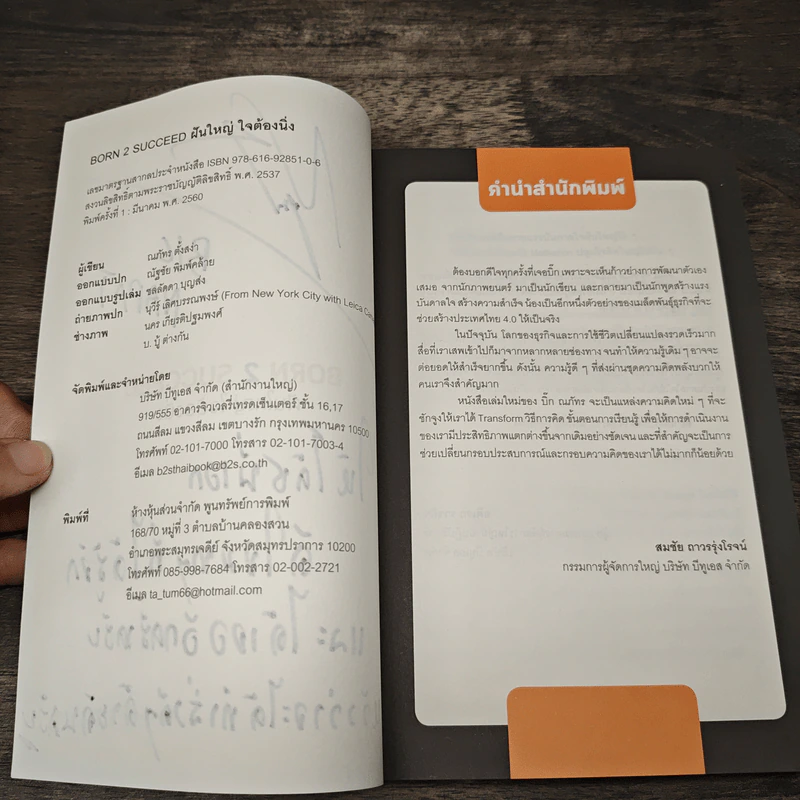 BORN 2 SUCCEED ฝันใหญ่ ใจต้องนิ่ง
เลขมาตรฐานสากลประจำหนังสือ ISBN 978-616-92851-0-6
สงวนลิขสิทธิ์ตามพระราชบัญญัติลิขสิทธิ์ พ.ศ. 2537
พิมพ์ครั้งที่ 1 : มีนาคม พ.ศ. 2560
ผู้เขียน ณภัทร ตั้งสง่า
ออกแบบปก ณัฐชัย พิมพ์คล้าย
ออกแบบรูปเล่ม ชลลัดดา บุญส่ง
ถ่ายภาพปก นุวีร์ เลิศบรรณพงษ์ (From New York City with Leica
ช่างภาพ นคร เกียรติปฐมพงศ์
บ. บู้ ต่างกัน
จัดพิมพ์และจำหน่ายโดย
บริษัท บีทูเอส จำกัด (สำนักงานใหญ่)
919/555 อาคารจิวเวลรี่เทรดเซ็นเตอร์ ชั้น 16,17
ถนนสีลม แขวงสีลม เขตบางรัก กรุงเทพมหานคร 10500
โทรศัพท์ 02-101-7000 โทรสาร 02-101-7003-4
อีเมล b2sthaibook@b2s.co.th
พิมพ์ที่ ห้างหุ้นส่วนจำกัด พูนทรัพย์การพิมพ์
168/70 หมู่ที่ 3 ตำบลบ้านคลองสวน
อำเภอพระสมุทรเจดีย์ จังหวัดสมุทรปราการ 10200
โทรศัพท์ 085-998-7684 โทรสาร 02-002-2721
อีเมล ta_tum66@hotmail.com
คำนำสำนักพิมพ์
ต้องบอกดีใจทุกครั้งที่เจอบิ๊ก เพราะจะเห็นก้าวย่างการพัฒนาตัวเอง
เสมอ จากนักภาพยนตร์ มาเป็นนักเขียน และกลายมาเป็นนักพูดสร้างแรง
บันดาลใจ สร้างความสำเร็จ น้องเป็นอีกหนึ่งตัวอย่างของเมล็ดพันธุ์ธุรกิจที่จะ
ช่วยสร้างประเทศไทย 4.0 ให้เป็นจริง
ในปัจจุบัน โลกของธุรกิจและการใช้ชีวิตเปลี่ยนแปลงรวดเร็วมาก
สื่อที่เราเสพเข้าไปก็มาจากหลากหลายช่องทาง จนทำให้ความรู้เดิม ๆ อาจจะ
ต่อยอดให้สำเร็จยากขึ้น ดังนั้น ความรู้ดี ๆ ที่ส่งผ่านชุดความคิดพลังบวกให้
คนเราจึงสำคัญมาก
หนังสือเล่มใหม่ของ บิ๊ก ณภัทร จะเป็นแหล่งความคิดใหม่ ๆ ที่จะ
ชักจูงให้เราได้ Transform วิธีการคิด ขั้นตอนการเรียนรู้ เพื่อให้การดำเนินงาน
ของเรามีประสิทธิภาพแตกต่างขึ้นจากเดิมอย่างชัดเจน และที่สำคัญจะเป็นการ
ช่วยเปลี่ยนกรอบประสบการณ์และกรอบความคิดของเราได้ไม่มากก็น้อยด้วย
สมชัย ถาวรรุ่งโรจน์
กรรมการผู้จัดการใหญ่ บริษัท บีทูเอส จำกัด